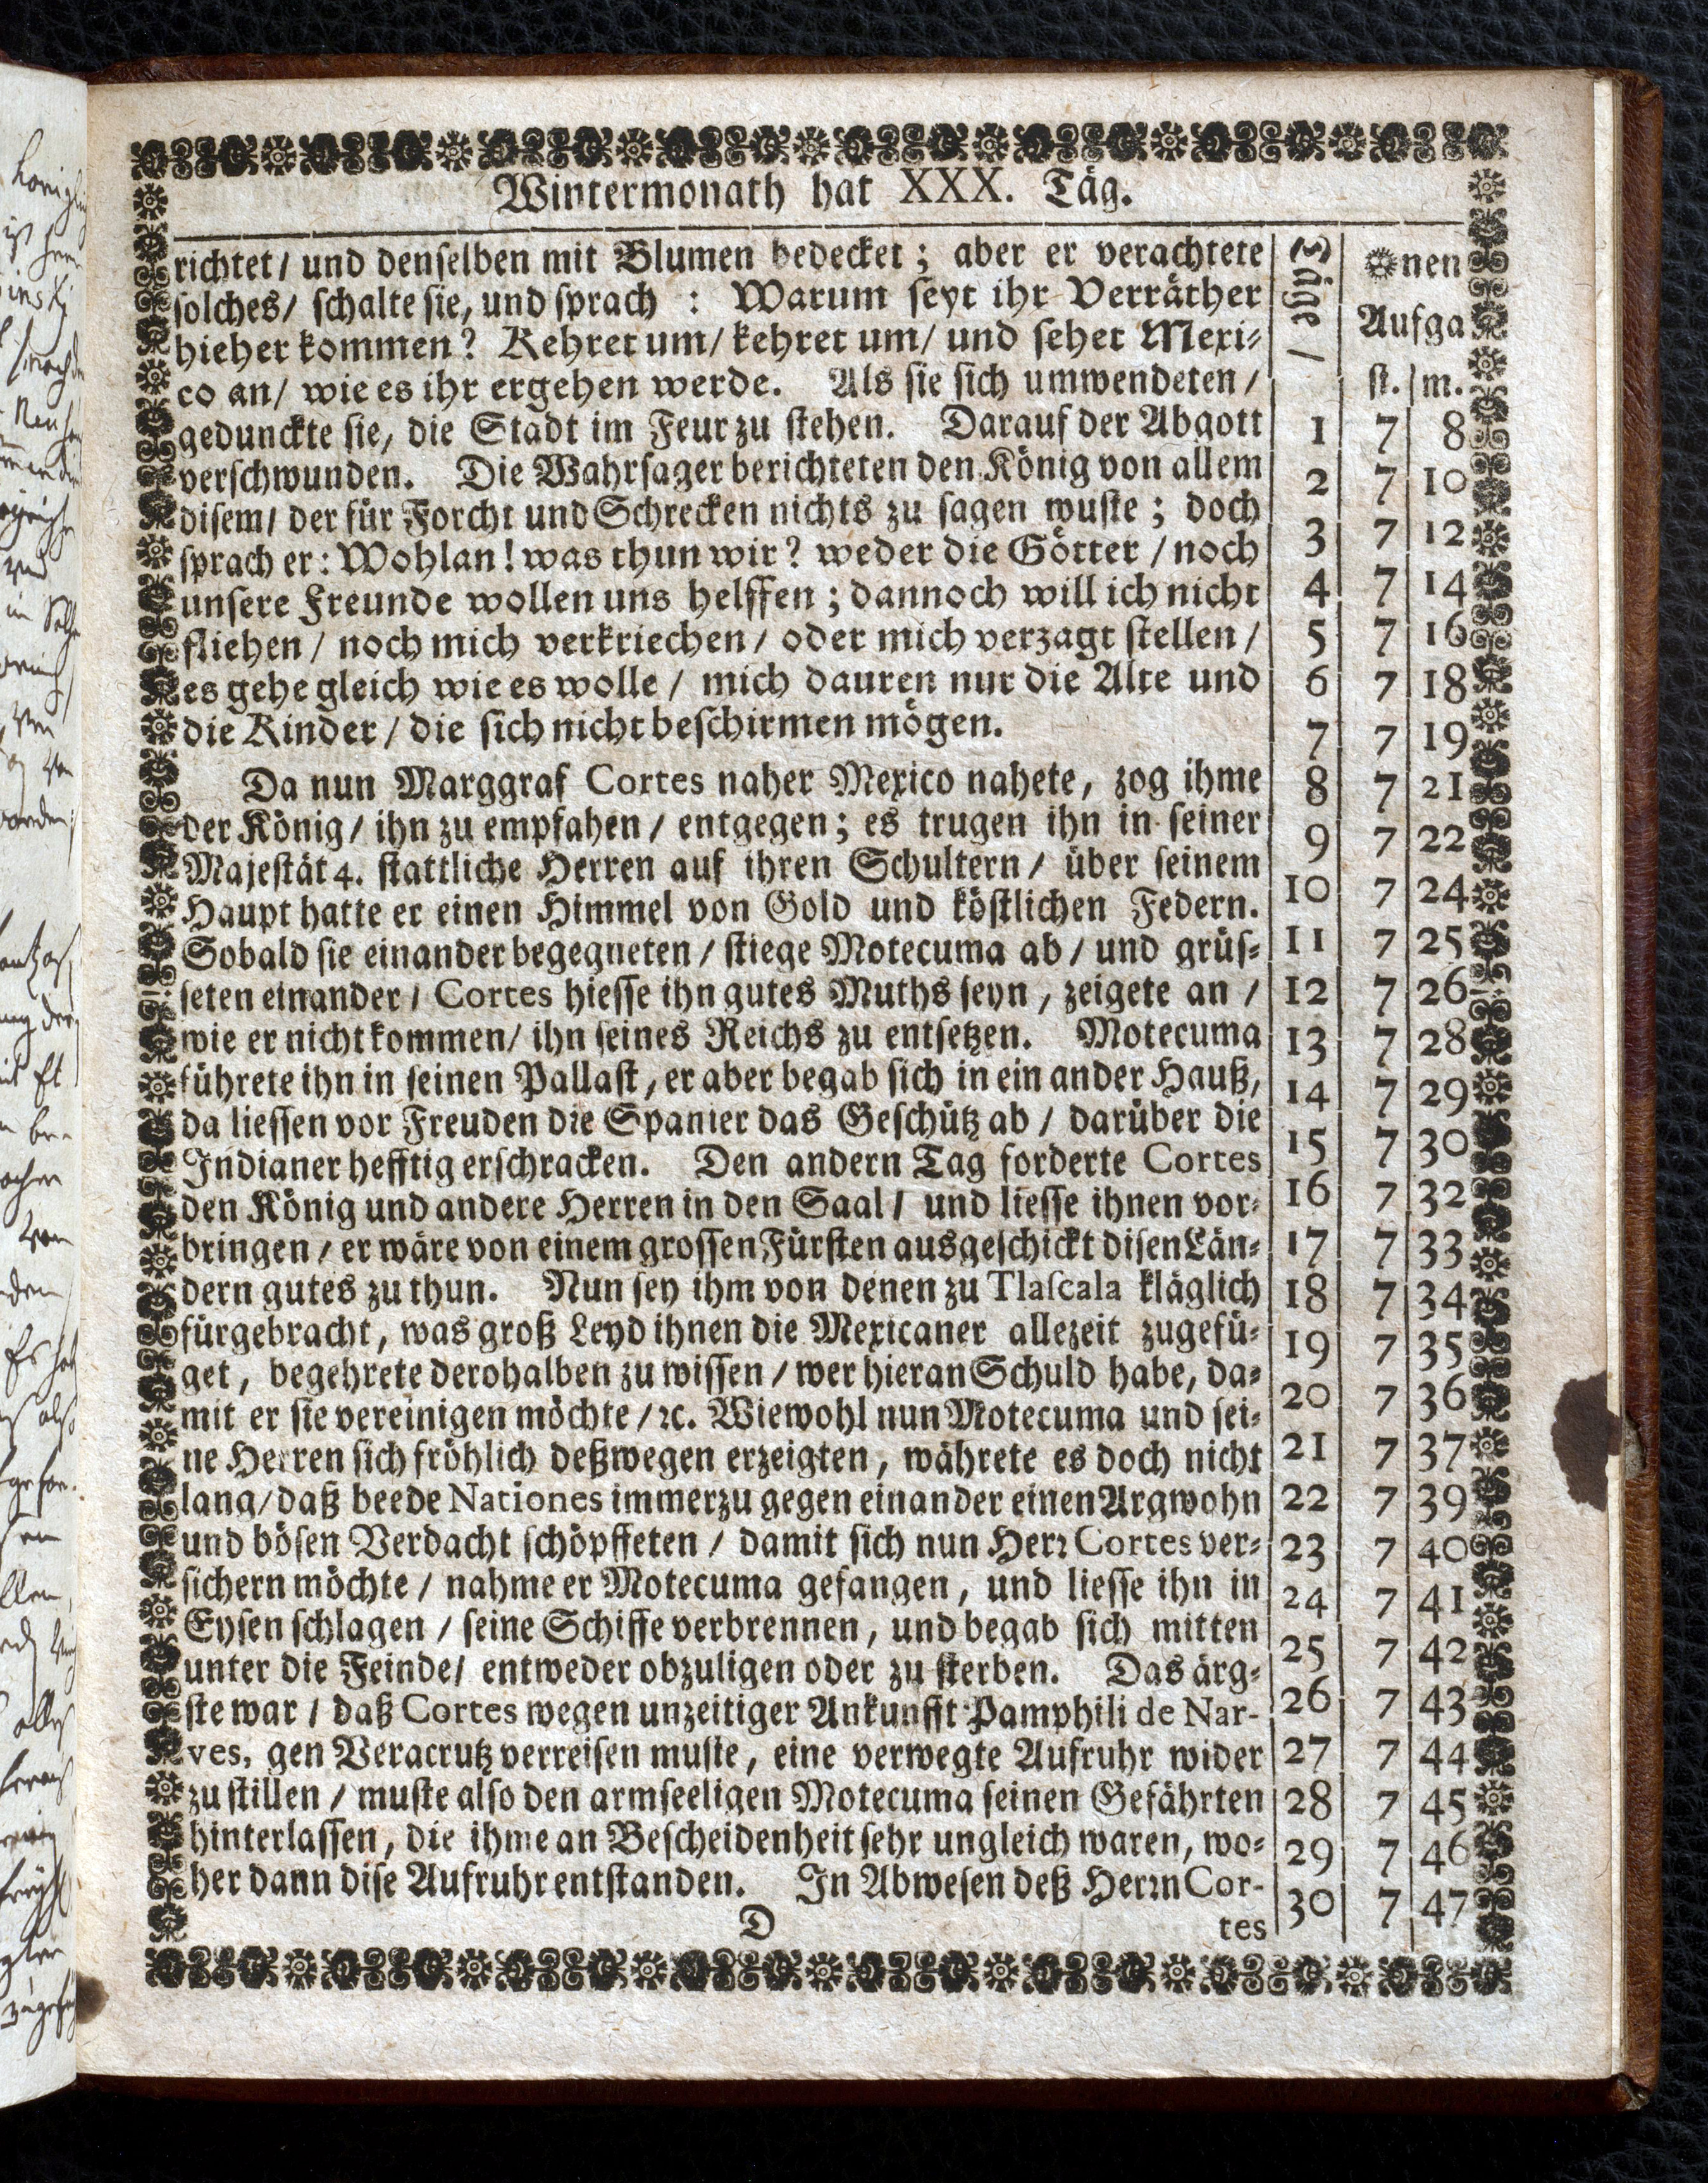 Wintermonath hat XXX. Täg.
richtet / und denselben mit Blumen bedecket ; aber er verachtete
solches / schalte sie, und sprach : Warum seyt ihr Verräther
hieher kommen ? Kehret um / kehret um / und sehet Mexi-
co an / wie es ihr ergehen werde. Als sie sich umwendeten /
gedunckte sie, die Stadt im Feur zu stehen. Darauf der Abgott
verschwunden. Die Wahrsager berichteten den König von allem
disem / der für Forcht und Schrecken nichts zu sagen wuste ; doch
sprach er : Wohlan ! was thun wir ? weder die Götter / noch
unsere Freunde wollen uns helffen ; dannoch will ich nicht
fliehen / noch mich verkriechen / oder mich verzagt stellen /
es gehe gleich wie es wolle / mich dauren nur die Alte und
die Kinder / die sich nicht beschirmen mögen.
Da nun Marggraf Cortes naher Mexico nahete, zog ihme
der König / ihn zu empfahen / entgegen ; es trugen ihn in seiner
Majestät 4. stattliche Herren auf ihren Schultern / über seinem
Haupt hatte er einen Himmel von Gold und köstlichen Federn.
Sobald sie einander begegneten / stiege Motecuma ab / und grüs-
seten einander / Cortes hiesse ihn gutes Muths seyn, zeigete an /
wie er nicht kommen / ihn seines Reichs zu entsetzen. Motecuma
führete ihn in seinen Pallast, er aber begab sich in ein ander Hauß,
da liessen vor Freuden die Spanier das Geschütz ab / darüber die
Indianer hefftig erschracken. Den andern Tag forderte Cortes
den König und andere Herren in den Saal / und liesse ihnen vor-
bringen / er wäre von einem grossen Fürsten ausgeschickt disen Län-
dern gutes zu thun. Nun sey ihm von denen zu Tlascala kläglich
fürgebracht, was groß Leyd ihnen die Mexicaner allezeit zugefü-
get, begehrete derohalben zu wissen / wer hieran Schuld habe, da-
mit er sie vereinigen möchte / ꝛc. Wiewohl nun Motecuma und sei-
ne Herren sich fröhlich deßwegen erzeigten, währete es doch nicht
lang / daß beede Nationes immerzu gegen einander einen Argwohn
und bösen Verdacht schöpffeten / damit sich nun Herr Cortes ver-
sichern möchte / nahme er Motecuma gefangen, und liesse ihn in
Eysen schlagen / seine Schiffe verbrennen, und begab sich mitten
unter die Feinde / entweder obzuligen oder zu sterben. Das ärg-
ste war / daß Cortes wegen unzeitiger Ankunfft Pamphili de Nar-
ves, gen Veracrutz verreisen muste, eine verwegte Aufruhr wider
zu stillen / muste also den armseeligen Motecuma seinen Gefährten
hinterlassen, die ihme an Bescheidenheit sehr ungleich waren, wo-
her dann dise Aufruhr entstanden. In Abwesen deß Herrn Cor-
D tes
Täge /
nen
Aufga
st. m.
1 7 8
2 7 10
3 7 12
4 7 14
5 7 16
6 7 18
7 7 19
8 7 21
9 7 22
10 7 24
11 7 25
12 7 26
13 7 28
14 7 29
15 7 30
16 7 32
17 7 33
18 7 34
19 7 35
20 7 36
21 7 37
22 7 39
23 7 40
24 7 41
25 7 42
26 7 43
27 7 44
28 7 45
29 7 46
30 7 47